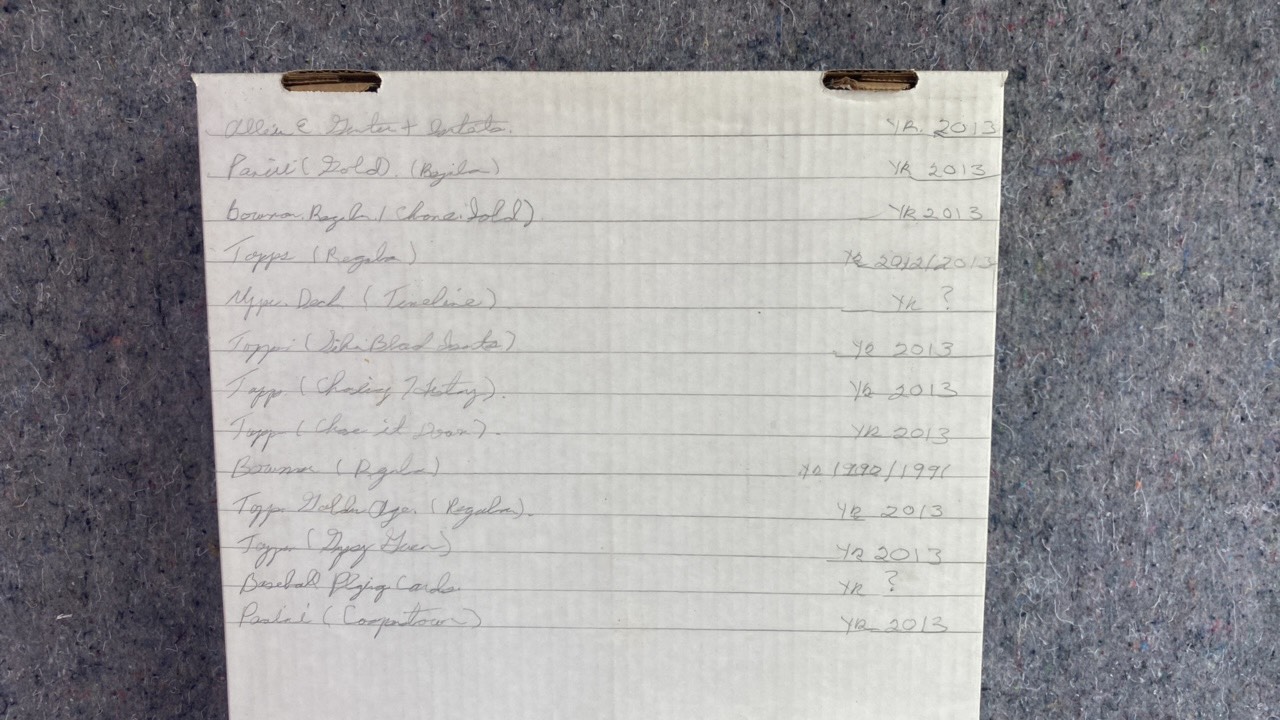 Allen & Ginter + Inserts. YR. 2013
Panini (Gold) (Regular) YR 2013
Bowman Regular / Chrome. Gold) YR 2013
Topps (Regular) YR 2012/2013
Upper Deck (Timeline) YR ?
Topps (Silk Blad Inserts) YR 2013
Topps (Chasing History). YR 2013
Topps (Chase it Down). YR 2013
Bowman (Regular) YR 1990/1991
Topps Golden Age. (Regular). YR 2013
Topps (Gypsy Queen) YR 2013
Baseball Playing Cards YR ?
Panini (Cooperstown) YR 2013